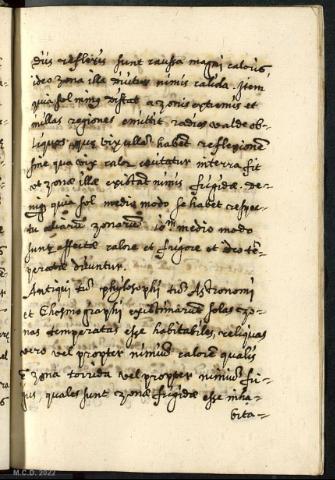 diis reflexis sunt causa magni caloris,
ideo zona illa dicitur nimis calida. Item
quia sol nimis distat a zonis extremis et
in illas regiones emittit radios valde ob-
liquos, vix ullos habent reflexionem
sine qua vix calor in terra fit
ut zonae illae existant nimis frigidae. De-
niq; quia sol medio modo se habet respec-
tu aliarum zonarum ideo medio modo
sunt affectae calore et frigore et ideo te-
peratae dicuntur.
Antiqui tum phylosophi tum Astronomi
et Chosmographi existimarunt solas zo-
nas temperatas esse habitabiles, reliquas
vero vel propter nimium calorem qualis
e zona torrida vel propter nimium fri-
gus, quales sunt zonae frigidae esse inha-
bita-
M.C.D. 2022